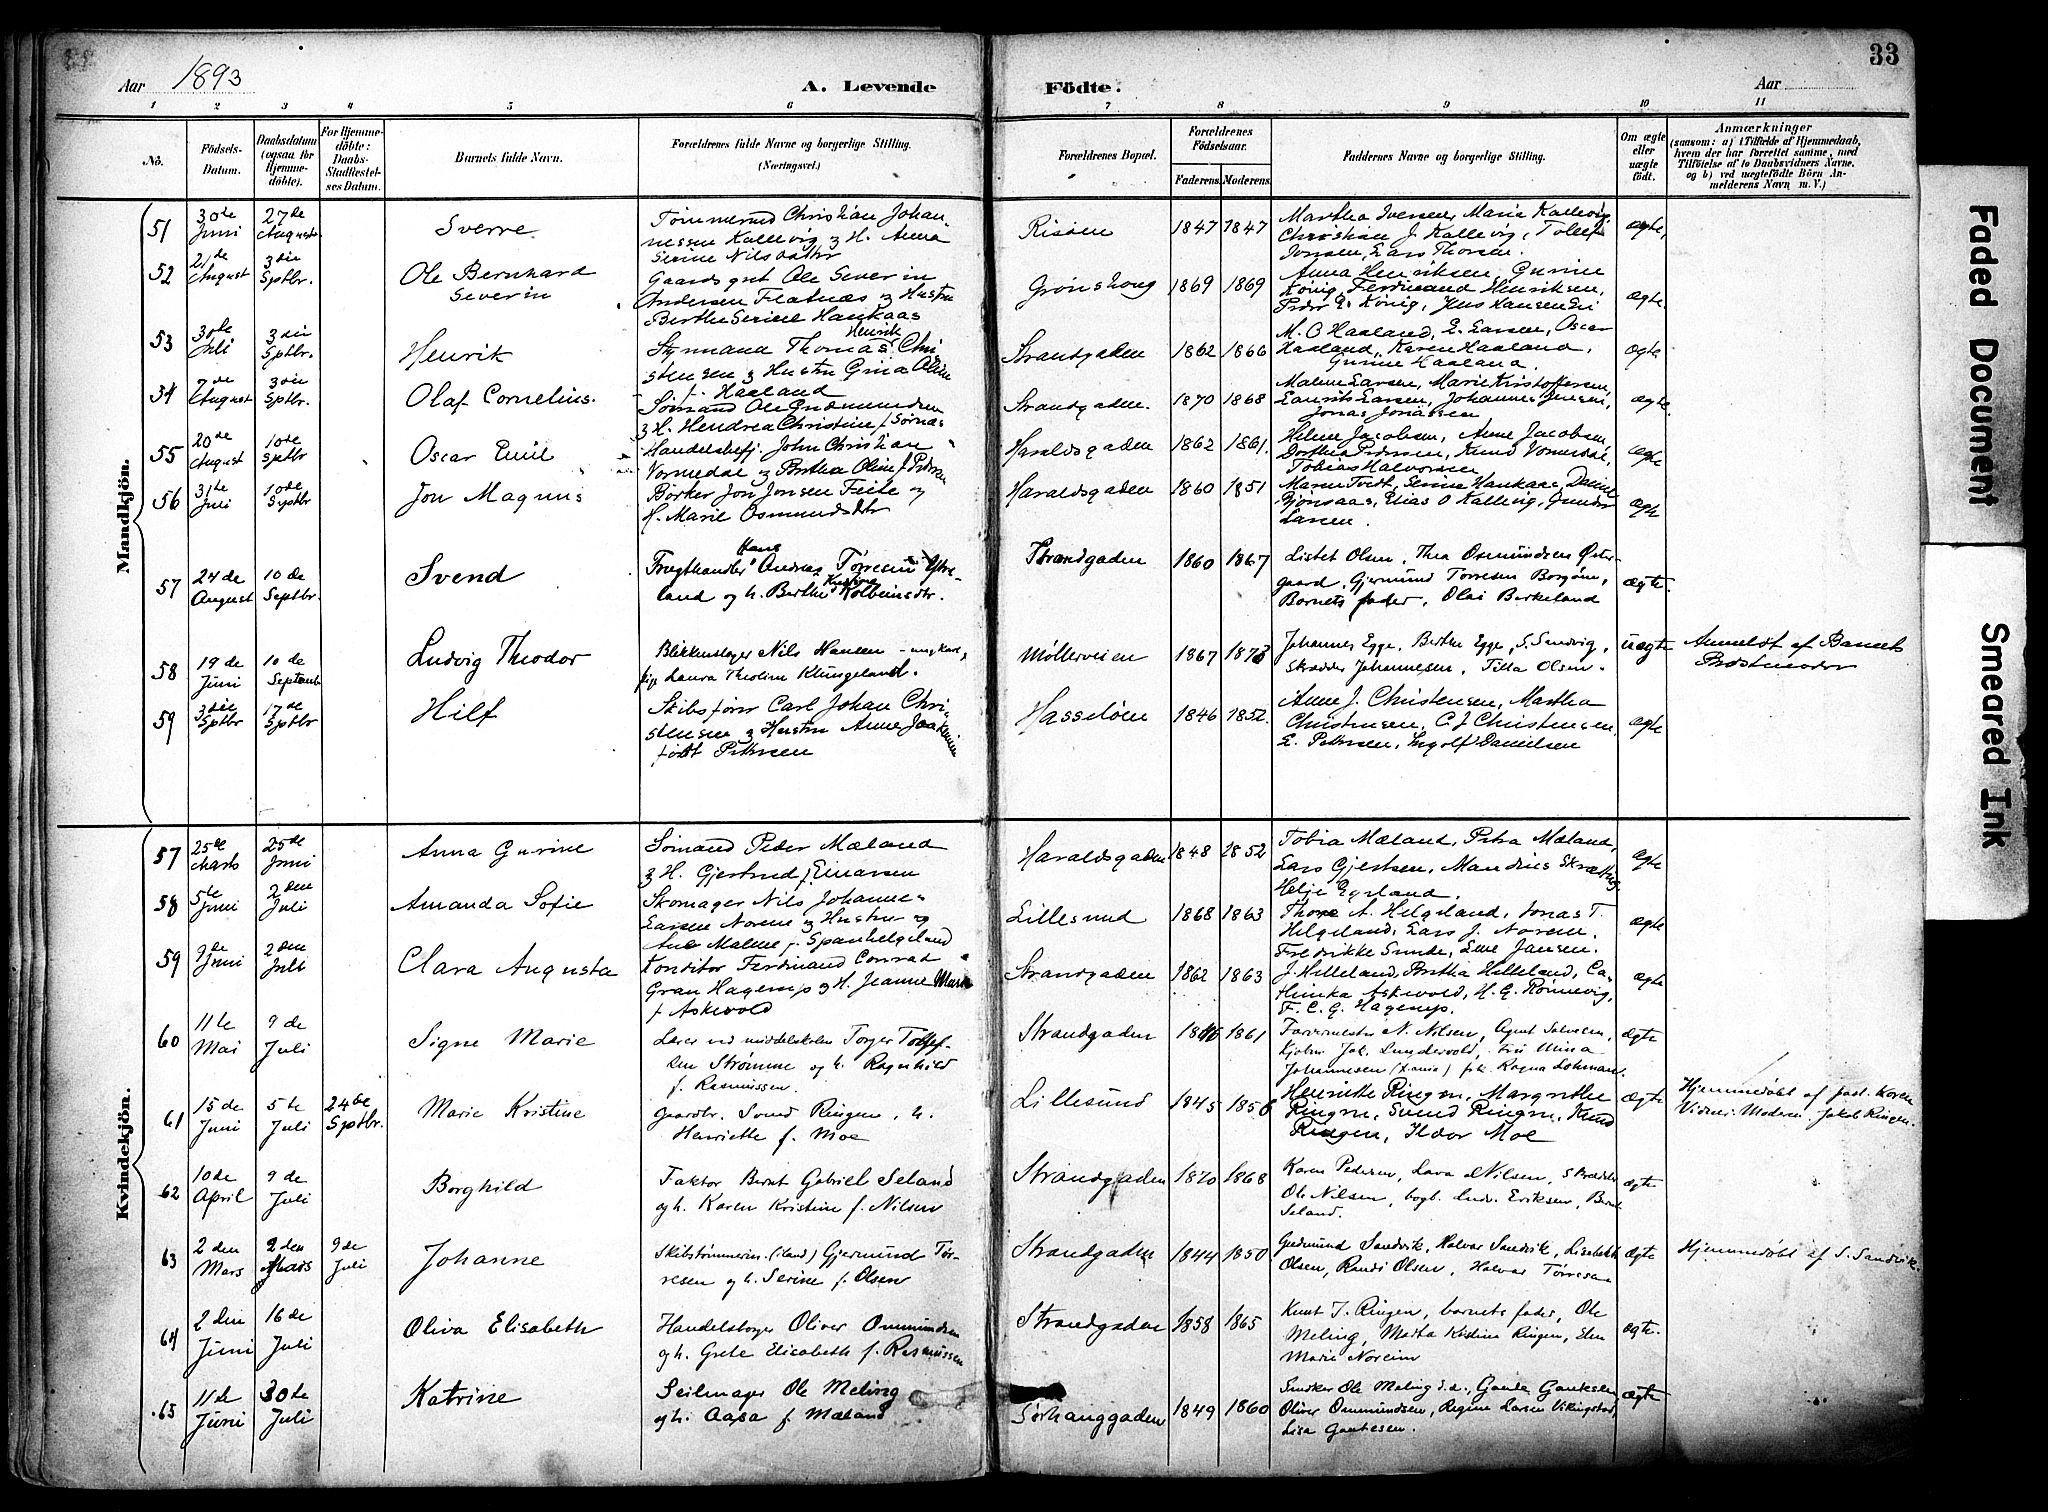 33
Aar 1893
A. Levende
Födte.
Aar
1 2 3 4 5 6 7 8 9 10 11
No.
Födsels-Datum.
Daabsdatum (ogsaa for Hjemme-döbte).
For Hjemme-döbte: Daabs-Stadfæstel-ses Datum.
Barnets fulde Navn.
Forældrenes fulde Navne og borgerlige Stilling. (Næringsvei.)
Forældrenes Bopæl.
Forældrenes Födselsaar.
Faderens. Moderens.
Faddernes Navne og borgerlige Stilling.
Om ægte eller uægte födt.
Anmærkninger
(saasom: a) i Tilfælde af Hjemmedaab, hvem der har forrettet samme, med Tilföielse af to Daabsvidners Navne, og b) ved uægtefödte Börn An-melderens Navn m. V.)
Mandkjön.
51 30te Juni 27de August Sverre
Tømmermd Christian Johan-
nessen Kallevig & H. Anna
Serine Nilsdatter
Risøen 1847 1847
Martha Iversen, Marie Kallevig,
Christian J. Kallevig, Tollef
Jonsen, Lars Thorsen.
ægte,
52 21de August 3die Sptbr. Ole Bernhard
Severin
Gaardsgut Ole Severin
Andersen Flatnæs & Hustru
Berthe Serine Haukaas
Grønshoug 1869 1869
Anna Henriksen, Gurine
König, Ferdinand Henriksen,
Peder E. König, Jens Hansen
ægte
53 30te Juli 3die Sptbr. Henrik
Henrik
Symand Thomas Chri-
stensen & Hustru Gina Oline
f. Haaland
Strandgaden 1862 1866
M. O Haaland, E. Larsen, Oscar
Haaland, Karen Haaland,
Gurine Haaland.
ægte
54 7de August 3die Sptbr. Olaf Cornelius.
Sømand Ole Gudmundsen
& H. Hendrea Christine f Sørnæs
Strandgaden. 1870 1868
Malene Larsen, Marie Kristoffersen,
Laurits Larsen, Johannes Jensen,
Jonas Jonassen
ægte.
55 20de August 10de Sptbr Oscar Emil
Handelsbetj. John Christian
Vormedal & Bertha Oline f. Petersen
Haraldsgaden 1862 1861.
Helene Jacobsen, Anne Jacobsen,
Dorthea Pedersen, Knud Vormedal,
Tobias Halvorsen
ægte
56 31te Juli 10de Sptbr Jon Magnus
Bødker Jon Jonsen Feite og
H. Marie Osmundsdtr
Haraldsgaden 1860 1851
Maren Tvedt, Serine Haukaas, Daline
Bjønsaas, Elias O Kallevig, Gunder
Larsen.
ægte
57 24de August 10de Septbr. Svend
Hans
Frugthandler Andreas Tørresen Ytre-
land og h. Berthe Kristine Kolbeinsdtr.
Strandgaden 1860 1867
Listet Olsen, Thea Osmundsen Øster-
gaard, Gjermund Torresen Borgøen,
Barnets fader, Olai Birkeland
ægte.
58 19de Juni 10de September Ludvig Theodor
Blikkenslager Nils Hansen - ungkarl,
pige Laura Theoline Klungeland.
Møllerveien 1867 1873
Johannes Egge, Berthe Egge, S. Sandvig,
Skrædder Johannesen, Tilla Olsen.
uægte
Anmeldt af Barnets
Bedstmoder
59 3die Sptbr 17de Sptbr Hilf
Skibsfører Carl Johan Chri-
stensen & Hustru Anne Joakimine
født Petersen
Hasseløen 1846 1852.
Anne J. Christensen, Martha
Christensen, C. J Christensen
E. Petersen, Ingolf Danielsen
ægte
Kvindekjön.
57 25de Marts 25de Juni Anna Gurine
Sømand Peder Mæland
& H. Gjertrud f. Einarsen
Haraldsgaden 1848 1852
Tobia Mæland, Petra Mæland,
Lars Gjertsen, Mandius Skrætting
Helje Egeland.
ægte
58 5te Juni 2den Juli Amanda Sofie
Skomager Nils Johannes
Larsen Noren & Hustru
Ane Malene f. Spanhelgeland
Lillesund 1868 1863
Thore A. Helgeland, Jonas T.
Helgeland, Lars J. Noren,
Fredrikke Sunde, Ene Jansen.
ægte
59 7de Juni 2den Juli Clara Augusta
Konditor Ferdinand Conrad
Gran Hagerup & H. Jeanne Marie
f Askevold
Strandgaden 1862 1863
J. Helleland, Bertha Helleland, Ca-
thinka Askevold, H. G. Rønnevig,
F. C. G. Hagerup.
ægte
60 11te Mai 9de Juli Signe Marie
Lærer ved middelskolen Torger Tollef-
sen Strømme og h. Ragnhild
f. Rasmussen.
Strandgaden 1861
Farvermester N. Nilsen, Agent Salvesen,
Kjøbm. Jak. Lundevold, Frk Mina
Johannesen, frk. Ragna Lohmann.
ægte
61 15de Juni 5te Juli 24de Sptbr. Marie Kristine
Gaardbr. Svend Ringen, h.
Henriette f. Moe
Lillesund 1845 1856
Henriette Ringen, Margrethe
Ringen, Svend Ringen, Knud
Ringen, Ildor Moe
ægte
Hjemmedøbt af past. Koren
Vidner: Moderen. Jakob Ringen.
62 10de April 9de Juli Borghild
Faktor Bernt Gabriel Seland
og h. Karen Kristine f. Nilsen
Strandgaden 1870 1868
Karen Pedersen, Lava Nilsen, Skrædder
Ole Nilsen, bogb. Ludv. Eriksen, Bernt
Seland.
ægte
63 2den Mars 2den Mars 9de Juli Johanne
Skibstømmerm. (land) Gjermund Tør-
resen og h. Serine f. Olsen
Strandgaden 1844 1850
Gudmund Sandvik, Halvar Sandvik, Lisabeth
Olsen, Randi Olsen, Halvar Tørresen
ægte
Hjemmedøbt af S. Sandvik.
64 2den Juni 16de Juli Oliva Elisabeth
Handelsborger Oliver Ommundsen
og h. Grete Elisabeth f. Rasmussen
Strandgaden 1858 1865
Knut T. Ringen, barnets fader, Ole
Meling, Marta Kristine Ringen, Elen
Marie Noreim
ægte.
65 11te Juni 30te Juli Katrine
Seilmager Ole Meling
og h. Aasa f. Mæland
Sørhauggaden 1849 1860
Snedker Ole Meling s.d., Gaute Gautesen
Oliver Ommundsen, Regine Larsen Vikingstad,
Lisa Gautesen.
ægte
Faded Document
Smeared Ink